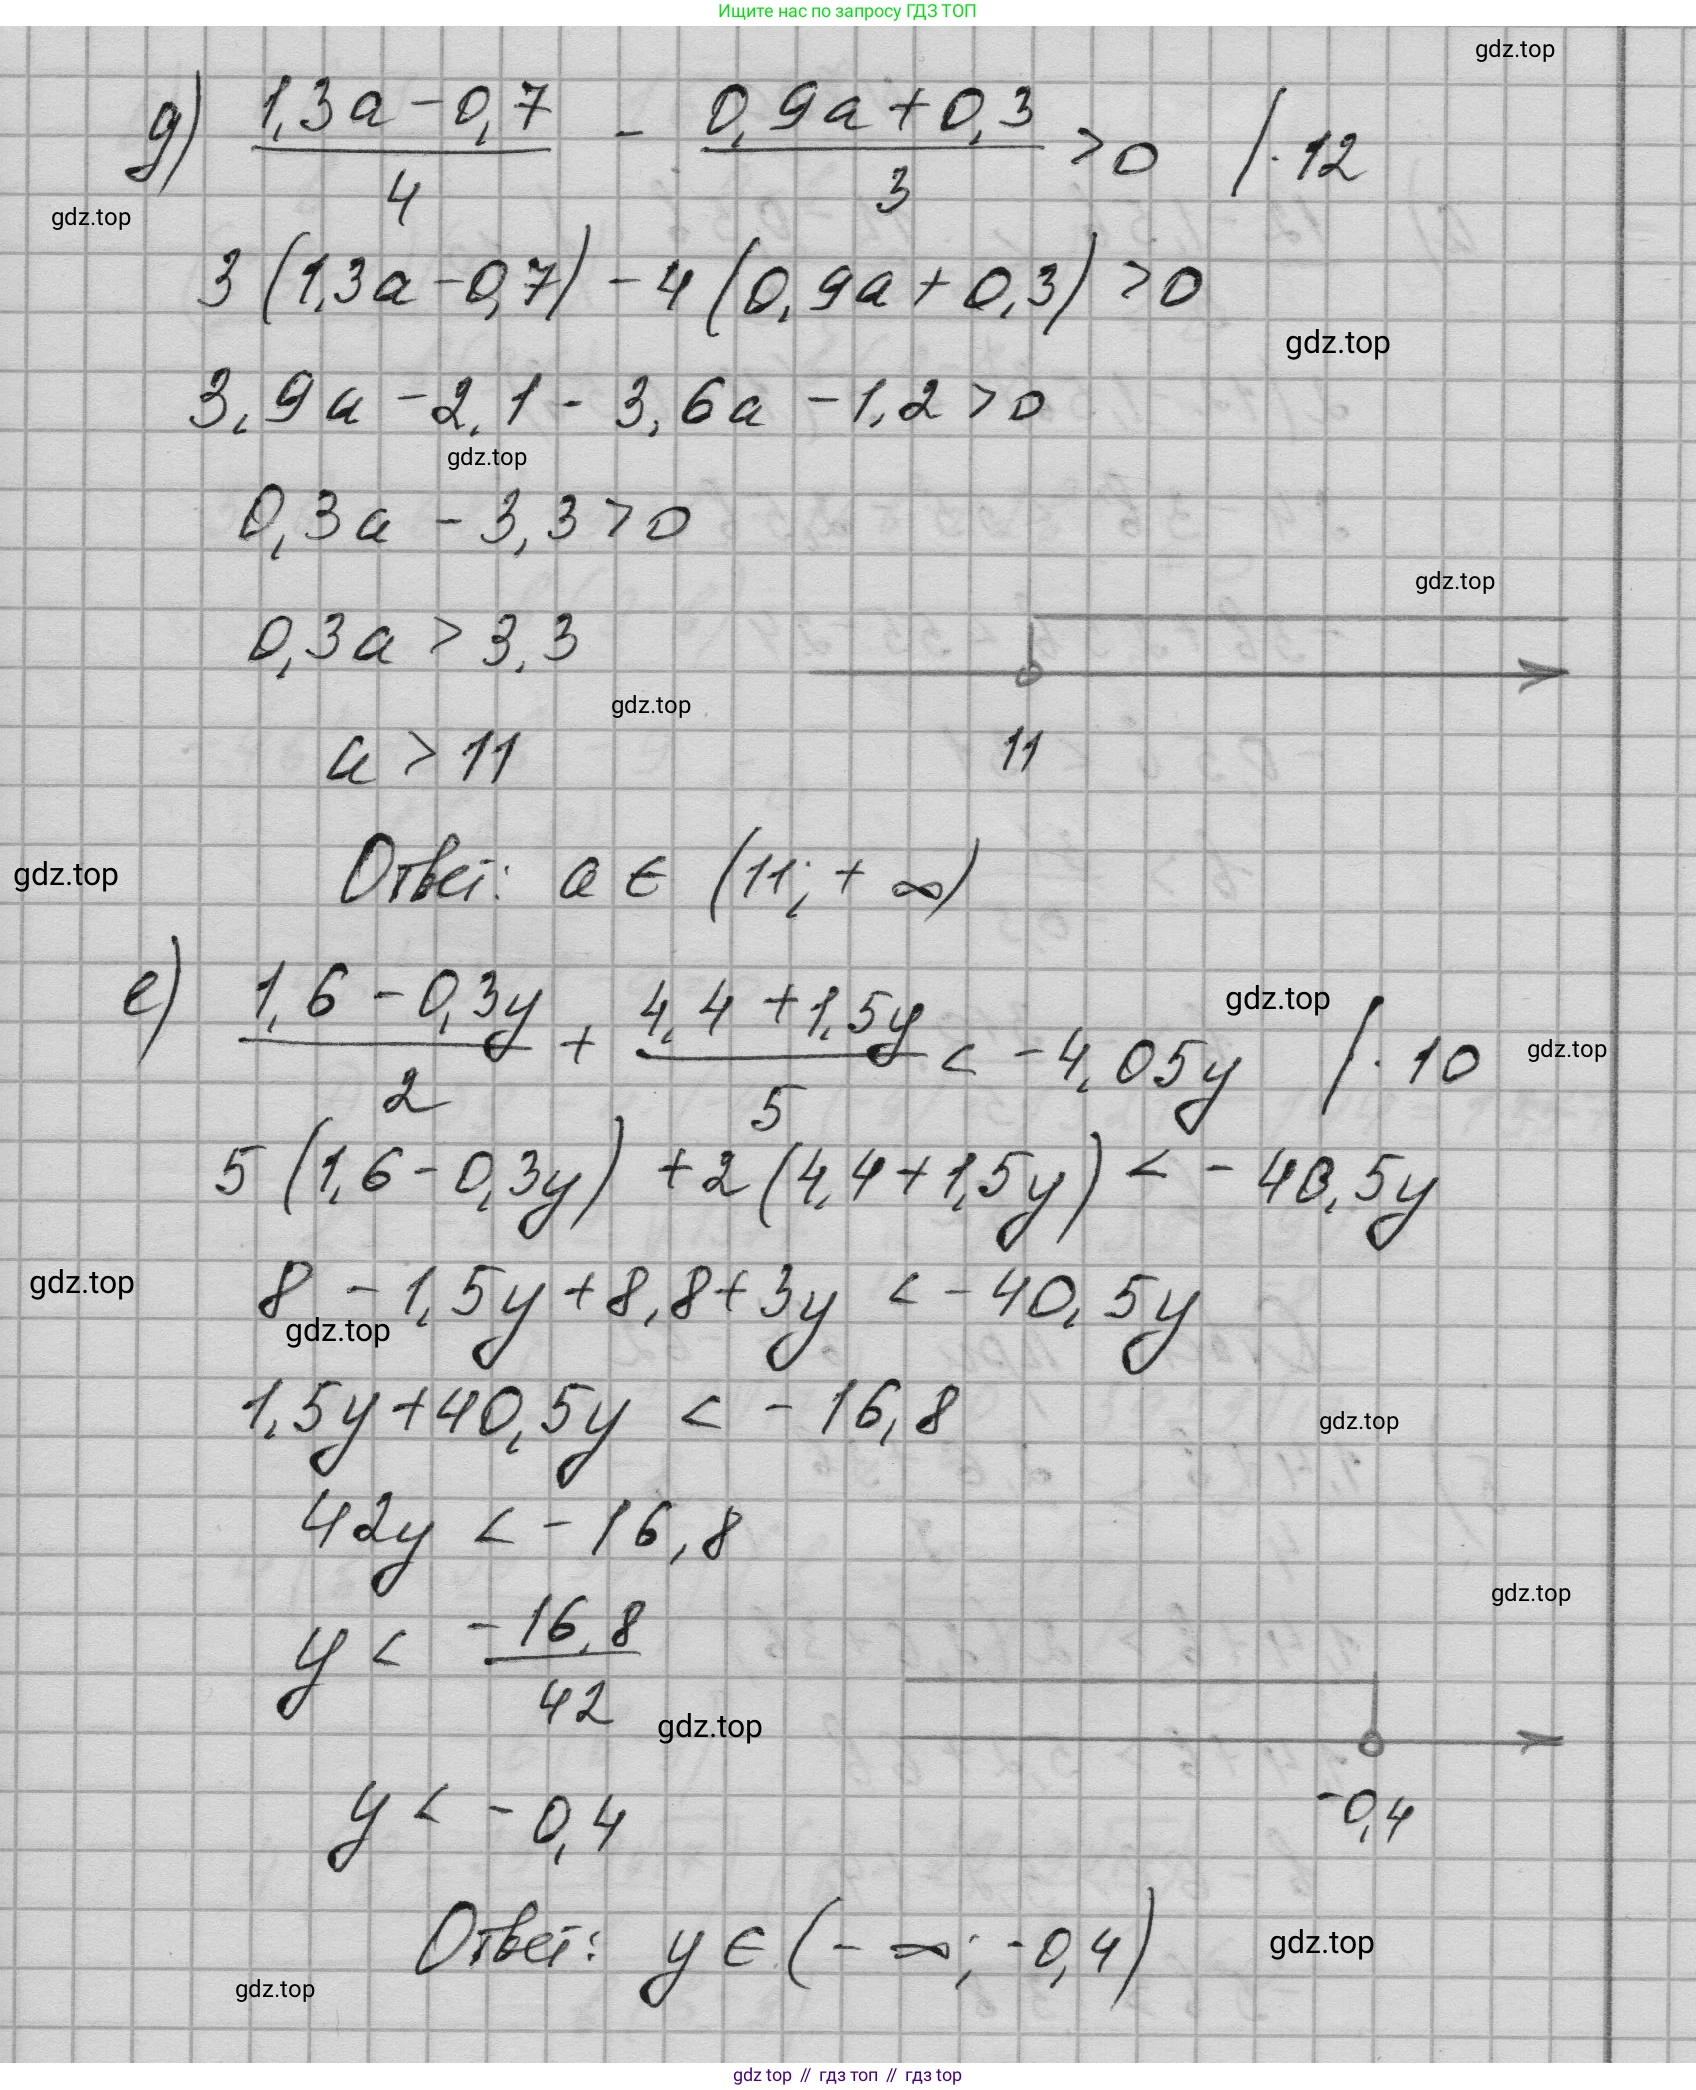 Ищите нас по запросу ГДЗ ТОП
gdz.top
д) (1,3a - 0,7)/4 - (0,9a + 0,3)/3 > 0 /· 12
gdz.top
3 (1,3a - 0,7) - 4 (0,9a + 0,3) > 0
gdz.top
3,9a - 2,1 - 3,6a - 1,2 > 0
gdz.top
0,3a - 3,3 > 0
gdz.top
0,3a > 3,3
gdz.top
a > 11
11
Ответ: a ∈ (11; + ∞)
gdz.top
е) (1,6 - 0,3y)/2 + (4,4 + 1,5y)/5 < - 4,05y /· 10
gdz.top
gdz.top
5 (1,6 - 0,3y) + 2 (4,4 + 1,5y) < - 40,5y
gdz.top
8 - 1,5y + 8,8 + 3y < - 40,5y
gdz.top
1,5y + 40,5y < - 16,8
gdz.top
42y < - 16,8
gdz.top
y < (-16,8)/42
gdz.top
y < - 0,4
-0,4
Ответ: y ∈ (- ∞; -0,4)
gdz.top
gdz.top
gdz top // гдз топ // гдз top